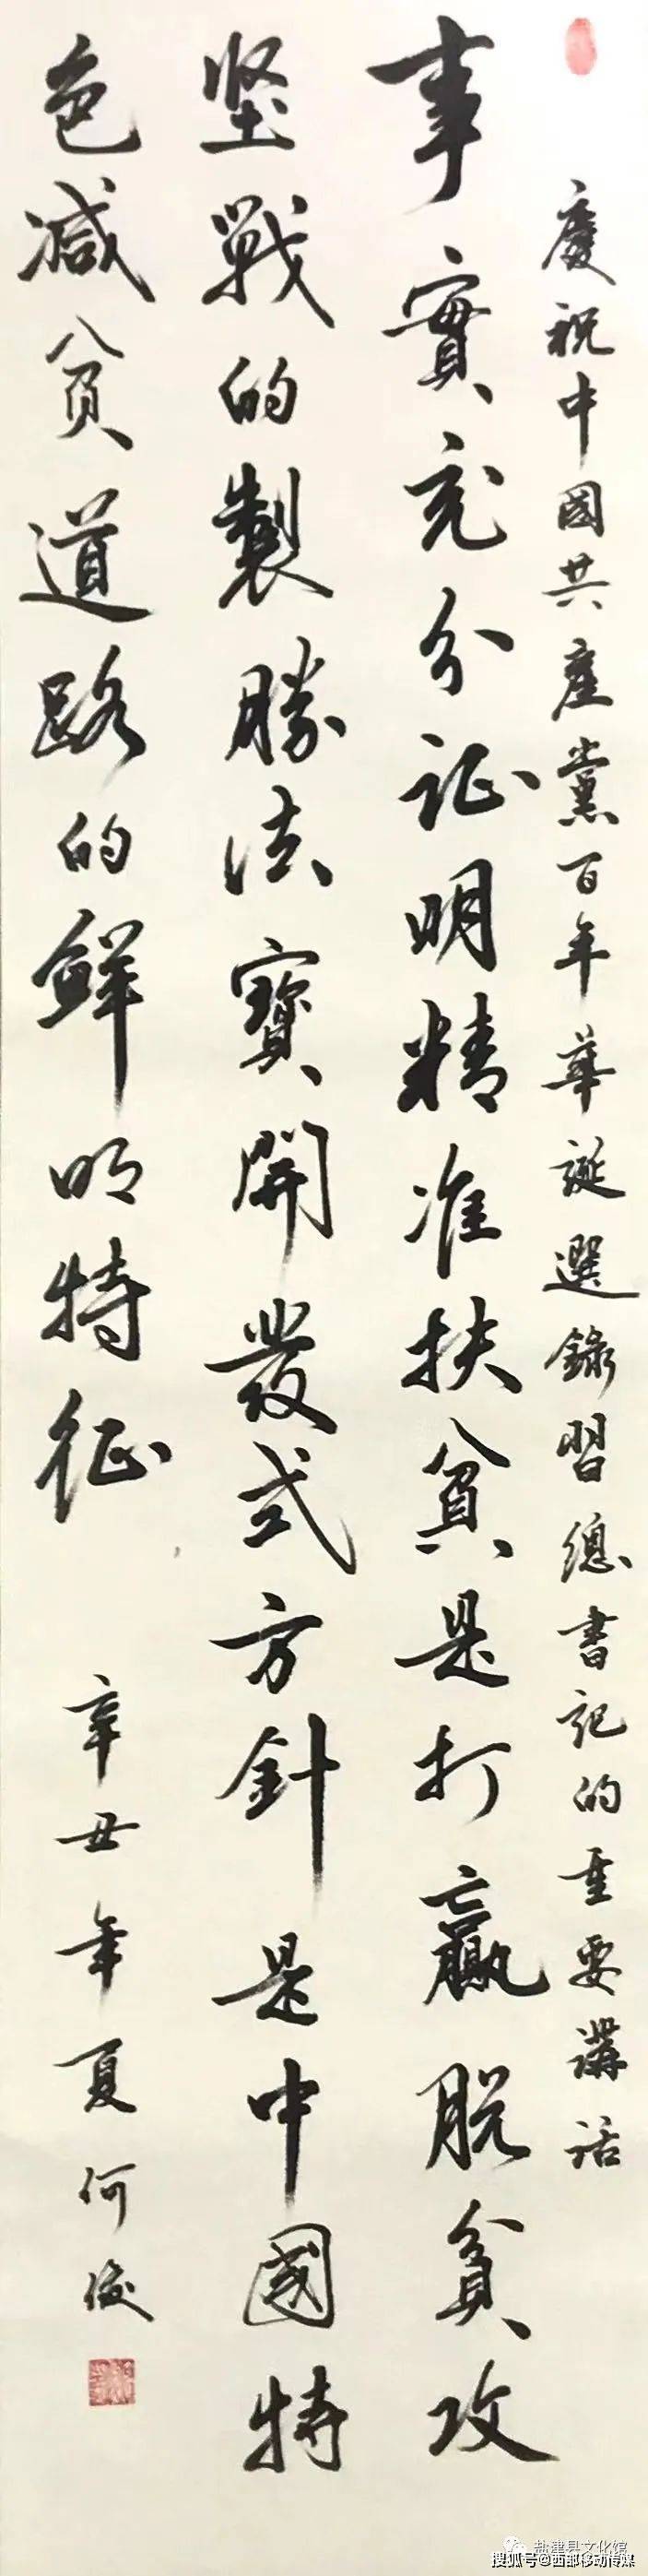 慶祝中國共產黨百年華誕選錄習總書記的重要講話
事實充分证明精准扶貧是打赢脱貧攻
坚戰的製勝法寶開發式方針是中國特
色减贫道路的鲜明特征
辛丑年夏何俊
盐津县文化馆
搜狐号@西部移动传媒